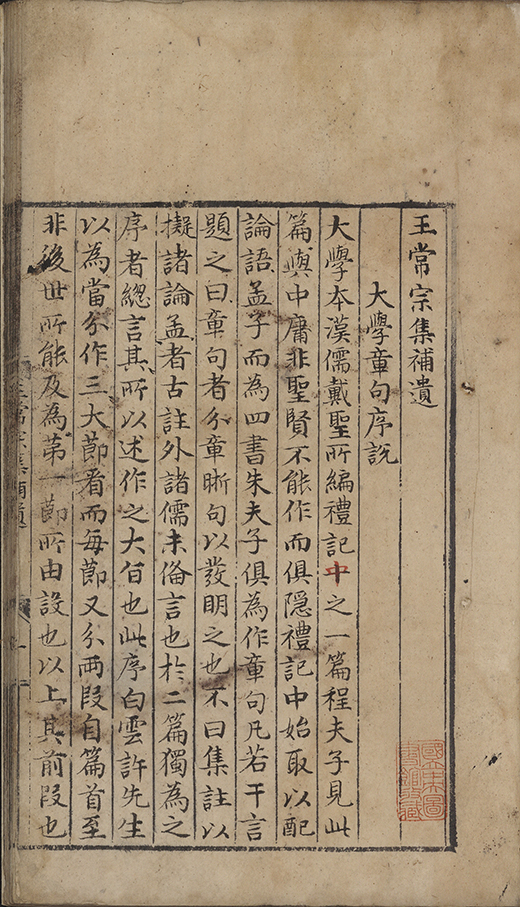 王常宗集補遺
大學章句序說
大學本漢儒戴聖所編禮記中之一篇程夫子見此
篇與中庸非聖賢不能作而俱隱禮記中始取以配
論語孟子而為四書朱夫子俱為作章句凡若干言
題之曰章句者分章晰句以發明之也不曰集註以
擬諸論孟者古註外諸儒未俻言也於二篇獨為之
序者緫言其所以述作之大㫖也此序白雲許先生
以為當分作三大節看而每節又分兩段自篇首至
非後世所能及為第一節所由設也以上其前段也
王常宗集補遺
一
國立中央圖書館收藏